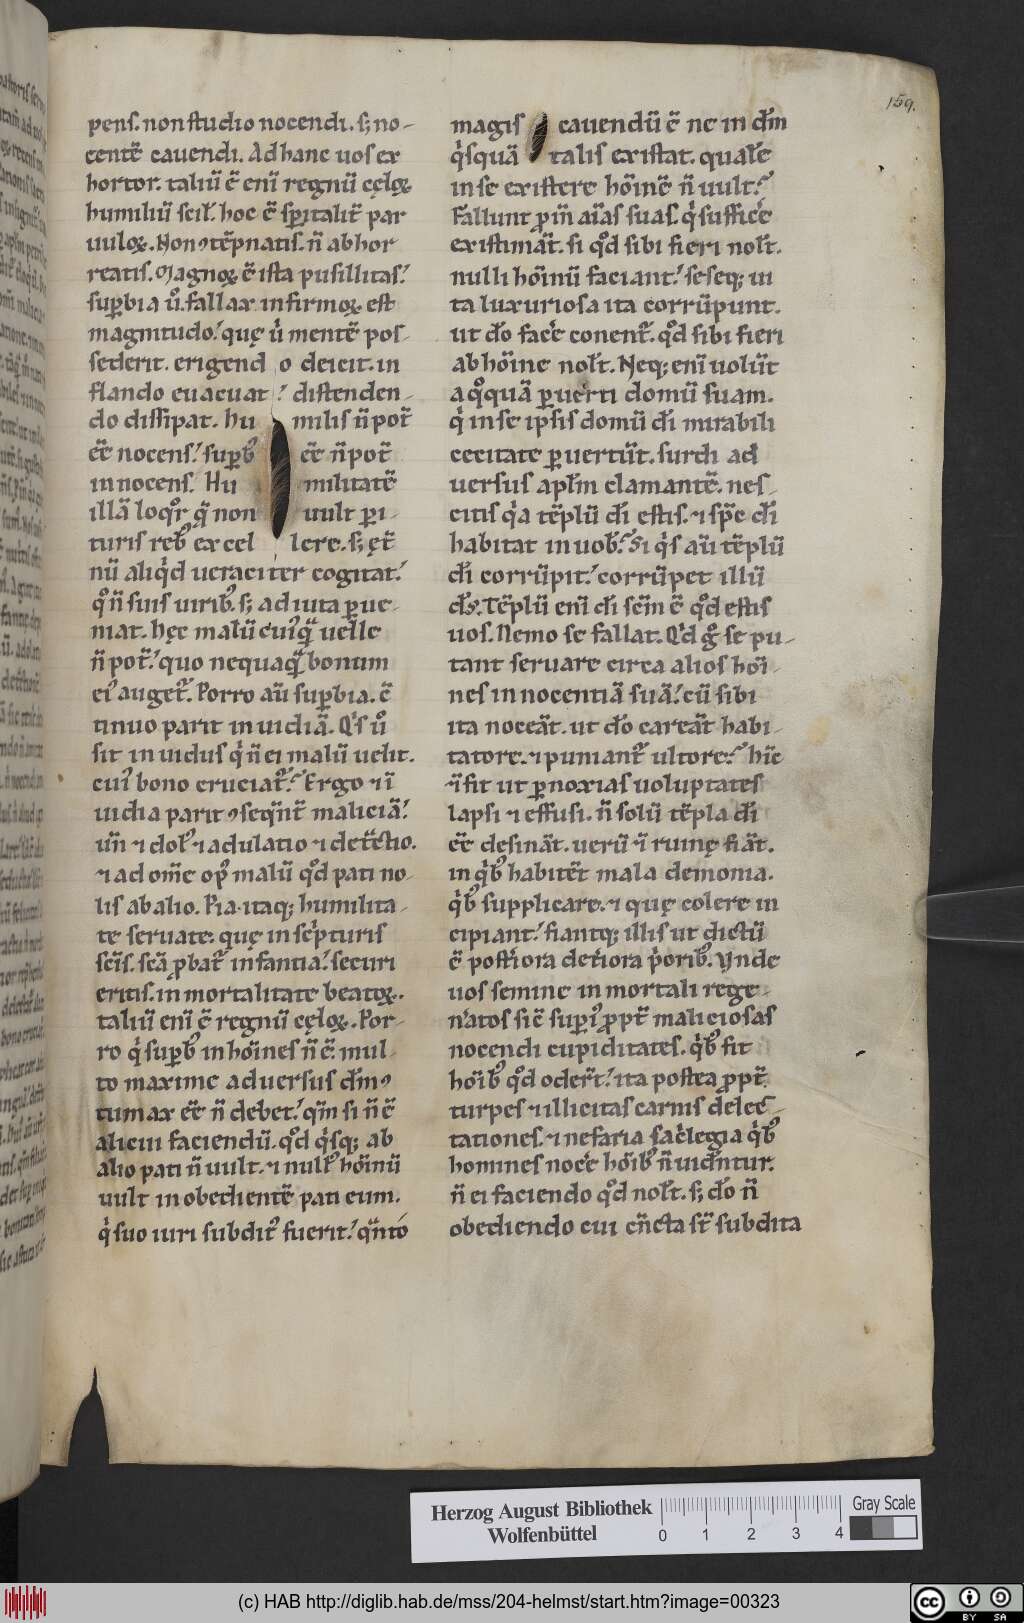 159.
pens. non studio nocendi. s; no-
centē cauendi. Ad hanc uos ex
hortor. taliū ē enī regnū cęloꝝ
humiliū scił. hoc ē sp̄italit̄ par
uuloꝝ. Non ꝯtēpnatis. n̄ abhor
reatis. Magnoꝝ ē ista pusillitas.
supbia ū. fallax infirmoꝝ est
magnitudo. quę ů mentē pos-
sederit. erigend o deicit. in
flando euacuat distenden-
do dissipat. hu milis n̄ pot̄
eē nocens. supb⁹ eē n̄ pot̄
innocens. Hu militatē
illā loqr̄ q̄ non uult pi-
turis reb⁹ excel lere. s; ęt̄
nū aliqͥd ueraciter cogitat.
qͦ n̄ suis uirib⁹. s; adiuta ꝑue-
niat. hęc malū cuiq̄ uelle
n̄ pot̄. quo nequaq̄ bonum
ei auget̄. Porro aū supbia. ē
tinuo parit inuidiā. Qͥs ů
sit inuidus qͥ n̄ ei malū uelit.
cui bono cruciat̄. Ergo ⁊ ī
uidia parit ꝯseqn̄t̄ maliciā.
un̄ ⁊ dol⁹ ⁊ adulatio ⁊ det̄ctio.
⁊ ad om̄e op⁹ malū qͦd pati no-
lis ab alio. Pia itaq; humilita-
te seruate. quę in scͥpturis
scīs. scā ꝓbat̄ infantia. securi
eritis. inmortalitate beatoꝝ.
taliū enī ē regnū cęloꝝ. Por-
ro qͥ supb⁹ in hōines n̄ ē. mul-
to maxime aduersus dm̄ ꝯ
tumax eē n̄ debet. qm̄ si n̄ ē
alicui faciendū. qͦd qͥsq; ab
alio pati n̄ uult. ⁊ null⁹ hōinū
uult inobedientē pati eum.
qͥ suo iuri subdit⁹ fuerit. qn̄to
magis cauendū ē ne in dm̄
qͥsquā talis existat. quale
in se existere hōinē n̄ uult.
Fallunt ꝑm̄ aīas suas. qͥ sufficē
existimāt. si qͦd sibi fieri nolt.
nulli hōinū faciant. seseq; ui
ta luxuriosa ita corrūpunt.
ut dō facē conent̄. qͦd sibi fieri
ab hōine nolt. Neq; enī uolūt
a qͦquā ꝑuerti domū suam.
qͥ in se ipsis domū dī mirabili
cecitate ꝑuertūt. surdi ad
uersus aplm̄ clamantē. nes-
citis qͥa tēplū dī estis. ⁊ spc̄ dī
habitat in uob⁹. Si qͥs aū tēplū
dī corrūpit. corrūpet illū
ds̄. Tēplū enī dī scm̄ ē qͦd estis
uos. Nemo se fallat. Qͥd gͦ se pu-
tant seruare circa alios hōi-
nes innocentiā suā. cū sibi
ita noceāt. ut dō careāt habi-
tatore. ⁊ puniant̄ ultore. hīc
⁊ fit ut ꝑ noxias uoluptates
lapsi ⁊ effusi. n̄ solū tēpla dī
eē desināt. uerū ⁊ ruinę fiāt.
in qͥb⁹ habitēt mala demonia.
qͥb⁹ supplicare. ⁊ quę colere in
cipiant. fiantq; illis ut dictū
ē postͥora detͥora pͥorib⁹. Vnde
uos semine inmortali rege-
nͣatos sic̄ supi ꝓpt̄ maliciosas
nocendi cupiditates. qͥb⁹ fit
hōib⁹ qͦd odert̄. ita postea ꝓpt̄
turpes ⁊ illicitas carnis delec-
tationes. ⁊ nefaria sacͥlegia qͥb⁹
homines nocē hōib⁹ n̄ uidn̄tur.
n̄ ei faciendo qͦd nolt. s; dō n̄
obediendo cui cn̄cta st̄ subdita
Herzog August Bibliothek
Wolfenbüttel
0 1 2 3 4
Gray Scale
(c) HAB http://diglib.hab.de/mss/204-helmst/start.htm?image=00323
cc BY SA